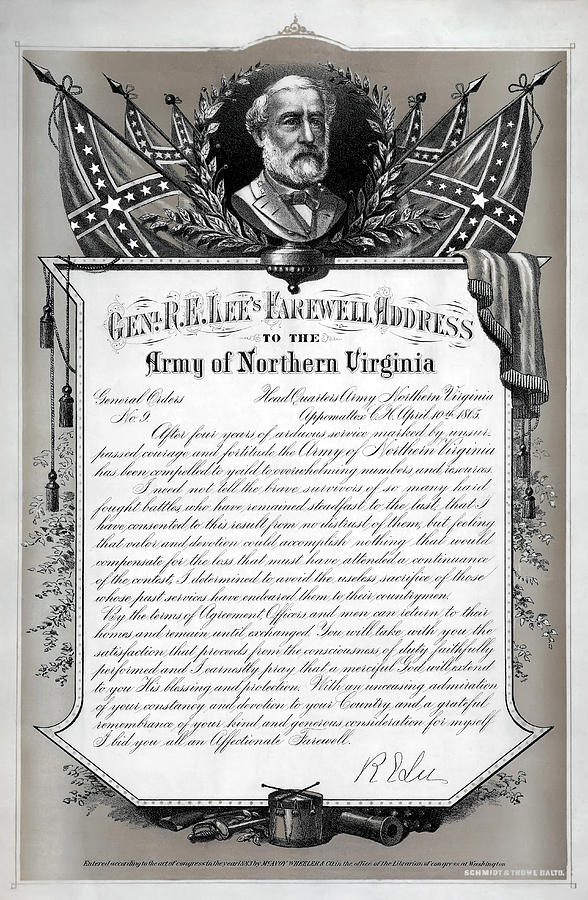 GENL. R.E. LEE'S FAREWELL ADDRESS
TO THE
Army of Northern Virginia
General Orders Head Quarters Army Northern Virginia
No. 9. Appomattox C.H. April 10th 1865
After four years of arduous service marked by unsur-
passed courage and fortitude the Army of Northern Virginia
has been compelled to yeild to overwhelming numbers and resources.
I need not tell the brave survivors of so many hard
fought battles, who have remained steadfast to the last, that I
have consented to this result from no distrust of them, but feeling
that valor and devotion could accomplish nothing that would
compensate for the loss that must have attended a continuance
of the contest, I determined to avoid the useless sacrifice of those
whose past services have endeared them to their countrymen.
By the terms of Agreement, Officers and men can return to their
homes and remain until exchanged. You will take with you the
satisfaction, that proceeds from the consciousness of duty faithfully
performed and I earnestly pray that a merciful God will extend
to you His blessing and protection. With an unceasing admiration
of your constancy and devotion to your Country and a grateful
remembrance of your kind and generous consideration for myself
I bid you all an Affectionate Farewell.
R E Lee
Entered according to the act of congress in the year 1883 by McAVOY WHEELER & CO. in the office of the Librarian of congress at Washington
SCHMIDT & TROWE BALTO.